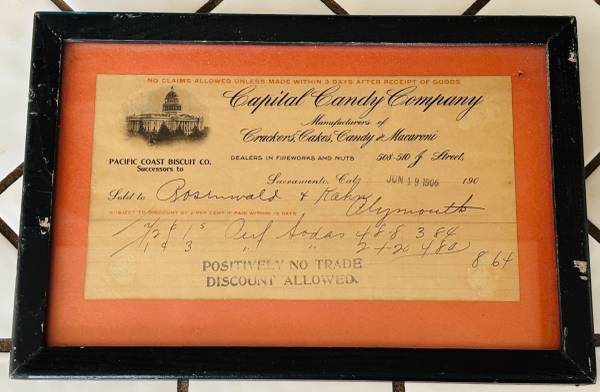 NO CLAIMS ALLOWED UNLESS MADE WITHIN 3 DAYS AFTER RECEIPT OF GOODS
Capital Candy Company
Manufacturers of
Crackers, Cakes, Candy & Macaroni
PACIFIC COAST BISCUIT CO.
Successors to
DEALERS IN FIREWORKS AND NUTS 508-510 J Street,
Sacramento, Cal., JUN 19 1906 190
Sold to Rosenwald & Kahn
Plymouth
SUBJECT TO DISCOUNT OF 2 PER CENT IF PAID WITHIN 15 DAYS
Sodas 48 8 3 84
1 3 " " 2 4 20 4 80
8 64
POSITIVELY NO TRADE
DISCOUNT ALLOWED.